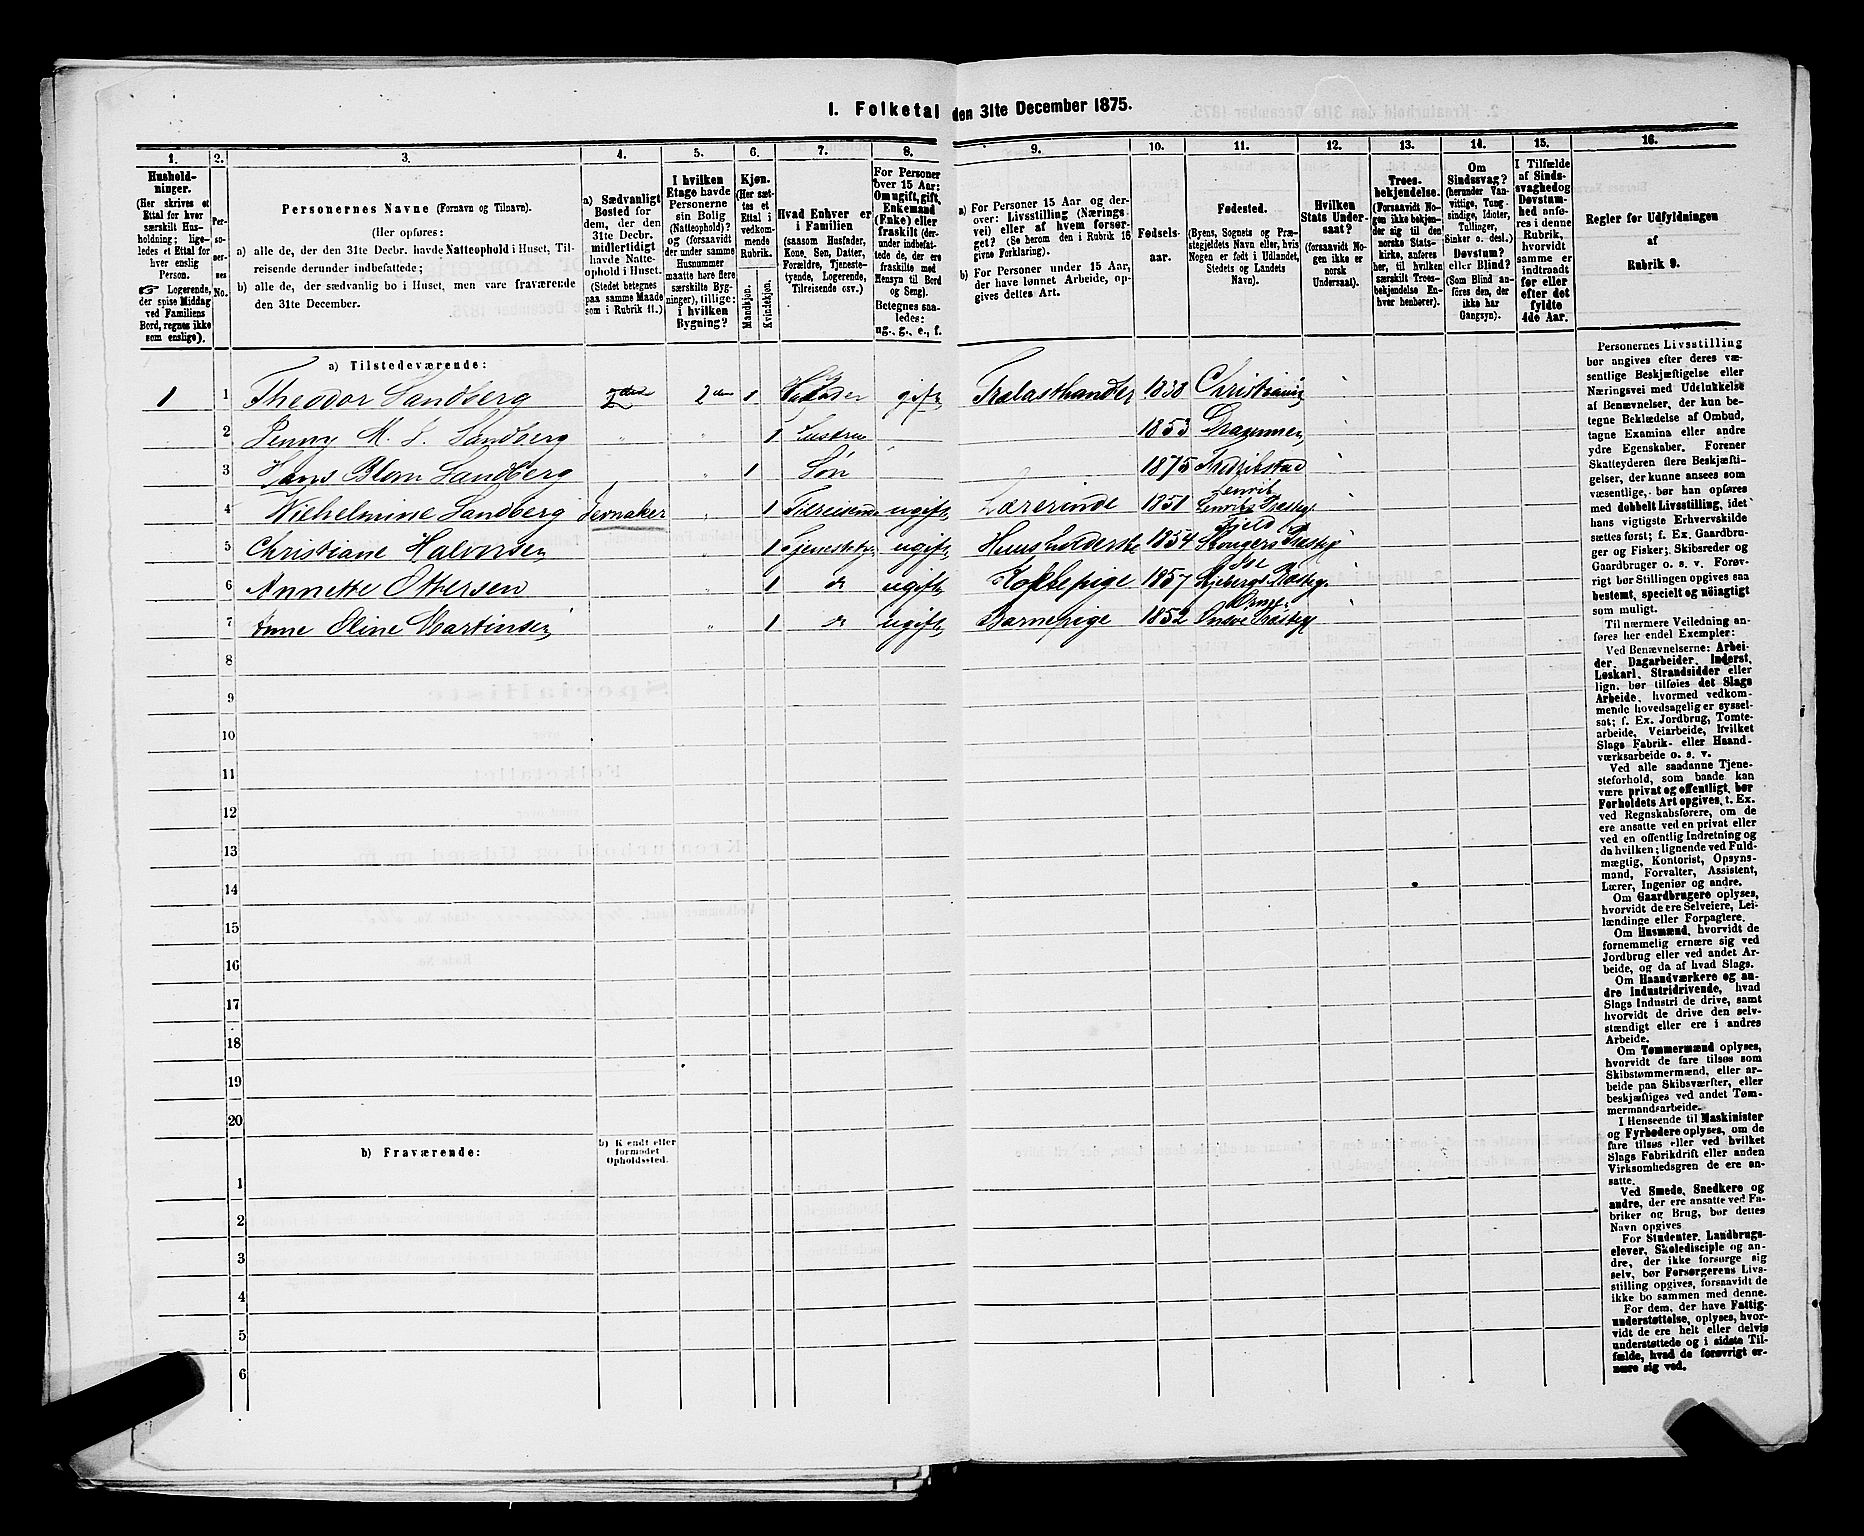 I. Folketal den 31te December 1875.
1. 2. 3. 4. 5. 6. 7. 8. 9. 10. 11. 12. 13. 14. 15. 16.
Hushold-
ninger.
(Her skrives et
Ettal for hver
særskilt Hus-
holdning; lige-
ledes et Ettal for
hver enslig
Person.
☞ Logerende,
der spise Middag
ved Familiens
Bord, regnes ikke
som enslige).
Per-
so-
ner-
nes
No.
Personernes Navne (Fornavn og Tilnavn).
(Her opføres:
a) alle de, der den 31te Decbr. havde Natteophold i Huset, Til-
reisende derunder indbefattede;
b) alle de, der sædvanlig bo i Huset, men vare fraværende
den 31te December.
a) Sædvanligt
Bosted for
dem, der den
31te Decbr.
midlertidigt
havde Natte-
ophold i Huset.
(Stedet betegnes
paa samme Maade
som i Rubrik 11.)
I hvilken
Etage havde
Personerne
sin Bolig
(Natteophold)?
og (forsaavidt
der under samme
Husnummer
maatte høre flere
særskilte Byg-
ninger), tillige:
i hvilken
Bygning?
Kjøn.
(Her sæt-
tes et
Ettal i
vedkom-
mende
Rubrik.
Mandkjøn.
Kvindekjøn.
Hvad Enhver er
i Familien
(saasom Husfader,
Kone, Søn, Datter,
Forældre, Tjeneste-
tyende, Logerende,
Tilreisende osv.)
For Personer
over 15 Aar:
Om ugift, gift,
Enkemand
(Enke) eller
fraskilt (der-
under indbefat-
tede de, der ere
fraskilte med
Hensyn til Bord
og Seng).
Betegnes saa-
ledes:
ug., g., e., f.
a) For Personer 15 Aar og der-
over: Livsstilling (Nærings-
vei) eller af hvem forsør-
get? (Se herom den i Rubrik 16
givne Forklaring).
b) For Personer under 15 Aar,
der have lønnet Arbeide, op-
gives dettes Art.
Fødsels-
aar.
Fødested.
(Byens, Sognets og Præ-
stegjeldets Navn eller, hvis
Nogen er født i Udlandet,
Stedets og Landets
Navn).
Hvilken
Stats Under-
saat?
(forsaavidt No-
gen ikke er
norsk
Undersaat).
Troes-
bekjendelse.
(Forsaavidt No-
gen ikke bekjen-
der sig til den
norske Stats-
kirke, anføres
her, til hvilken
særskilt Troes-
bekjendelse En-
hver henhører).
Om
Sindssvag?
(herunder Van-
vittige, Tung-
sindige, Idioter,
Tullinger,
Sinker o. desl.)
Døvstum?
eller Blind?
(Som Blind an-
føres den, der
ikke har
Gangsyn).
I Tilfælde
af Sinds-
svaghed og
Døvstum-
hed anfø-
res i denne
Rubrik,
hvorvidt
samme er
indtraadt
før eller
efter det
fyldte
4de Aar.
Regler for Udfyldningen
af
Rubrik 9.
a) Tilstedeværende:
1 1 Theodor Sandberg 2den 1 Husfader gift Trælasthandler 1838 Christiania
2 Penny M. L. Sandberg " " 1 Hustru 1853 Drammen
3 Hans Blom Sandberg " 1 Søn 1875 Fredrikstad
4 Wilhelmine Sandberg Jevnaker " 1 Tilreisende ugift Lærerinde 1851
5 Christiane Halvorsen " 1 ugift 1854
6 Annette Ottersen " 1 do ugift Kokkepige 1857
7 Anne Oline Martinsen " 1 do ugift Barnepige 1852
8
9
10
11
12
13
14
15
16
17
18
19
20
b) Fraværende:
b) Kjendt eller
formodet
Opholdssted.
1
2
3
4
5
6
Personernes Livsstilling
bør angives efter deres væ-
sentlige Beskjæftigelse eller
Næringsvei med Udelukkelse
af Benævnelser, der kun be-
tegne Beklædelse af Ombud,
tagne Examina eller andre
ydre Egenskaber. Forener
Skatteyderen flere Beskjæfti-
gelser, der kunne ansees som
væsentlige, bør han opføres
med dobbelt Livsstilling, idet
hans vigtigste Erhvervskilde
sættes først; f. Ex. Gaardbru-
ger og Fisker; Skibsreder og
Gaardbruger o. s. v. Forøv-
rigt bør Stillingen opgives saa
bestemt, specielt og nöiagtigt
som muligt.
Til nærmere Veiledning an-
føres her endel Exempler:
Ved Benævnelserne: Arbei-
der, Dagarbeider, Inderst,
Løskarl, Strandsidder eller
lign. bør tilføies det Slags
Arbeide, hvormed vedkom-
mende hovedsagelig er syssel-
sat; f. Ex. Jordbrug, Tomte-
arbeide, Veiarbeide, hvilket
Slags Fabrik- eller Haand-
værksarbeide o. s. v.
Ved alle saadanne Tjene-
steforhold, som baade kan
være privat og offentligt, bør
Forholdets Art opgives, t. Ex.
ved Regnskabsførere, om de
ere ansatte ved en privat eller
ved en offentlig Indretning og
da hvilken; lignende ved Fuld-
mægtig, Kontorist, Opsyns-
mand, Forvalter, Assistent,
Lærer, Ingeniør og andre.
Om Gaardbrugere oplyses,
hvorvidt de ere Selveiere, Lei-
lændinge eller Forpagtere.
Om Husmænd, hvorvidt de
fornemmelig ernære sig ved
Jordbrug eller ved andet Ar-
beide, og da af hvad Slags.
Om Haandværkere og an-
dre Industridrivende, hvad
Slags Industri de drive, samt
hvorvidt de drive den selv-
stændigt eller ere i andres
Arbeide.
Om Tømmermænd oplyses,
hvorvidt de fare tilsøs som
Skibstømmermænd, eller ar-
beide paa Skibsværfter, eller
beskjæftiges ved andet Tøm-
mermandsarbeide.
I Henseende til Maskinister
og Fyrbødere oplyses, om de
fare tilsøs eller ved hvilket
Slags Fabrikdrift eller anden
Virksomhedsgren de ere an-
satte.
Ved Smede, Snedkere og
andre, der ere ansatte ved Fa-
briker og Brug, bør dettes
Navn opgives
For Studenter, Landbrugs-
elever, Skoledisciple og an-
dre, der ikke forsørge sig
selv, bør Forsørgerens Livs-
stilling opgives, forsaavidt de
ikke bo sammen med denne.
For dem, der have Fattig-
understøttelse, oplyses, hvor-
vidt de ere helt eller delvis
understøttede og i sidste Til-
fælde, hvad de forøvrigt er-
nære sig ved.